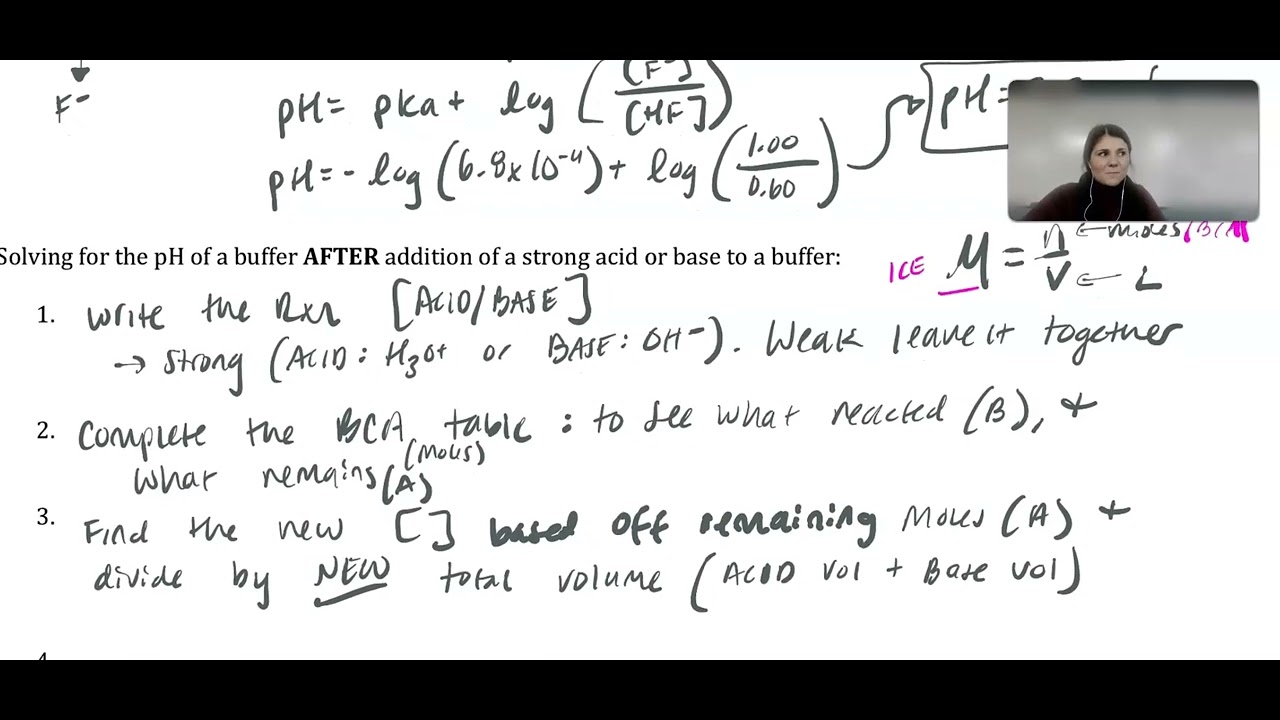 F⁻
pH = pKa + log ([F⁻]/[HF])
pH = - log (6.8x10⁻⁴) + log (1.00/0.60)
pH =
Solving for the pH of a buffer AFTER addition of a strong acid or base to a buffer:
ICE M = n/V ← moles
← L
1. Write the Rxn [ACID/BASE]
→ Strong (ACID: H₃O+ or BASE: OH⁻). Weak leave it together
2. Complete the BCA table: to see what reacted (B), +
(moles)
what remains (A)
3. Find the new [ ] based off remaining moles (A) +
divide by NEW total volume (ACID vol + Base vol)